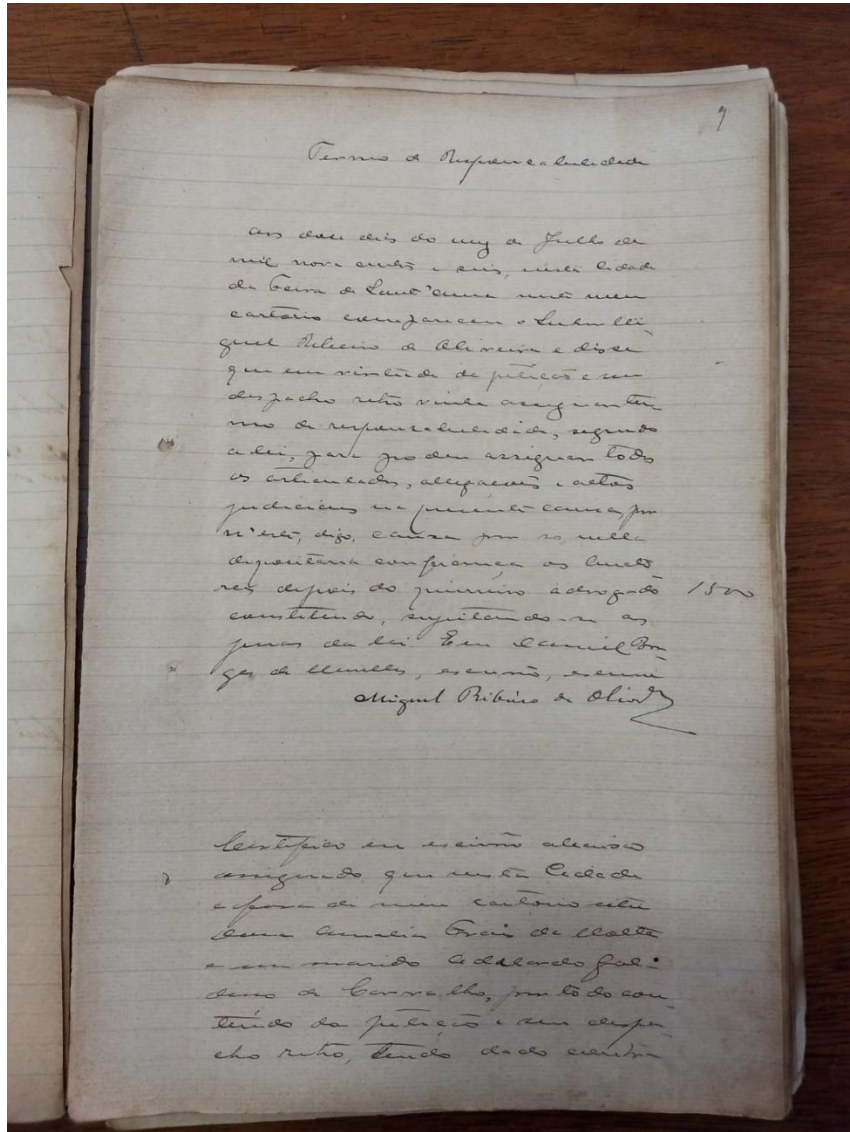 9
Termo de Responsabelidade
aos dose dias do mez de Julho de
mil nove centos e seis, nesta Cidade
da Feira de Sant'Anna em meu
cartorio compareceu o Mi-
guel Ribeiro de Oliveira e disse
que em virtude da petição e seu
despacho retro vinha assignar ter-
mo de responsabelidade, segundo
a lei, para poder assignar todos
os articulados, allegações e actos
judiciaes na presente causa, por
n'esta, digo, causa por se nella
depositaria confiança os aucto
res depois do primeiro advogado
1500
constituido, sujeitando-se as
penas da lei. Eu Daniel Bor
ges de Menelles, escrivão, escrevi
Miguel Ribeiro de Olivra
Certifico eu escrivão abaixo
assignado que nesta Cidade
e fora de meu cartorio citei
Dona Amalia Froes da Motta
e seu marido Adalardo Gal-
dino de Carvalho, por todo con-
teúdo da petição e seu despa-
cho retro, tendo dado contra